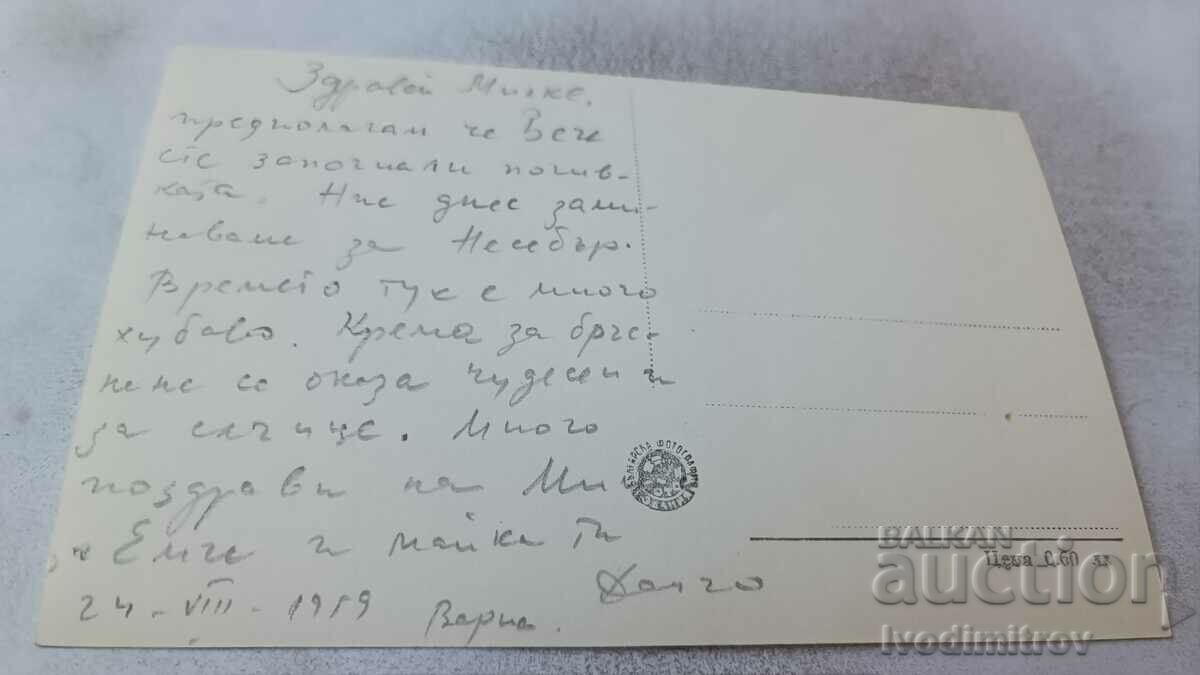 Здравей Милке,
предполагам че Вече
сте започнали почив-
ката. Ние днес зами-
наваме за Несебър.
Времето тук е много
хубаво. Крема за бръс-
нене се оказа чудесен и
за слънце. Много
поздрави на Ми
Емче и майка ти
24-VIII-1959 Варна.
БЪЛГАРСКА ФОТОГРАФИЯ
Цена 0.60 лв
BALKAN
auction
Ivodimitrov